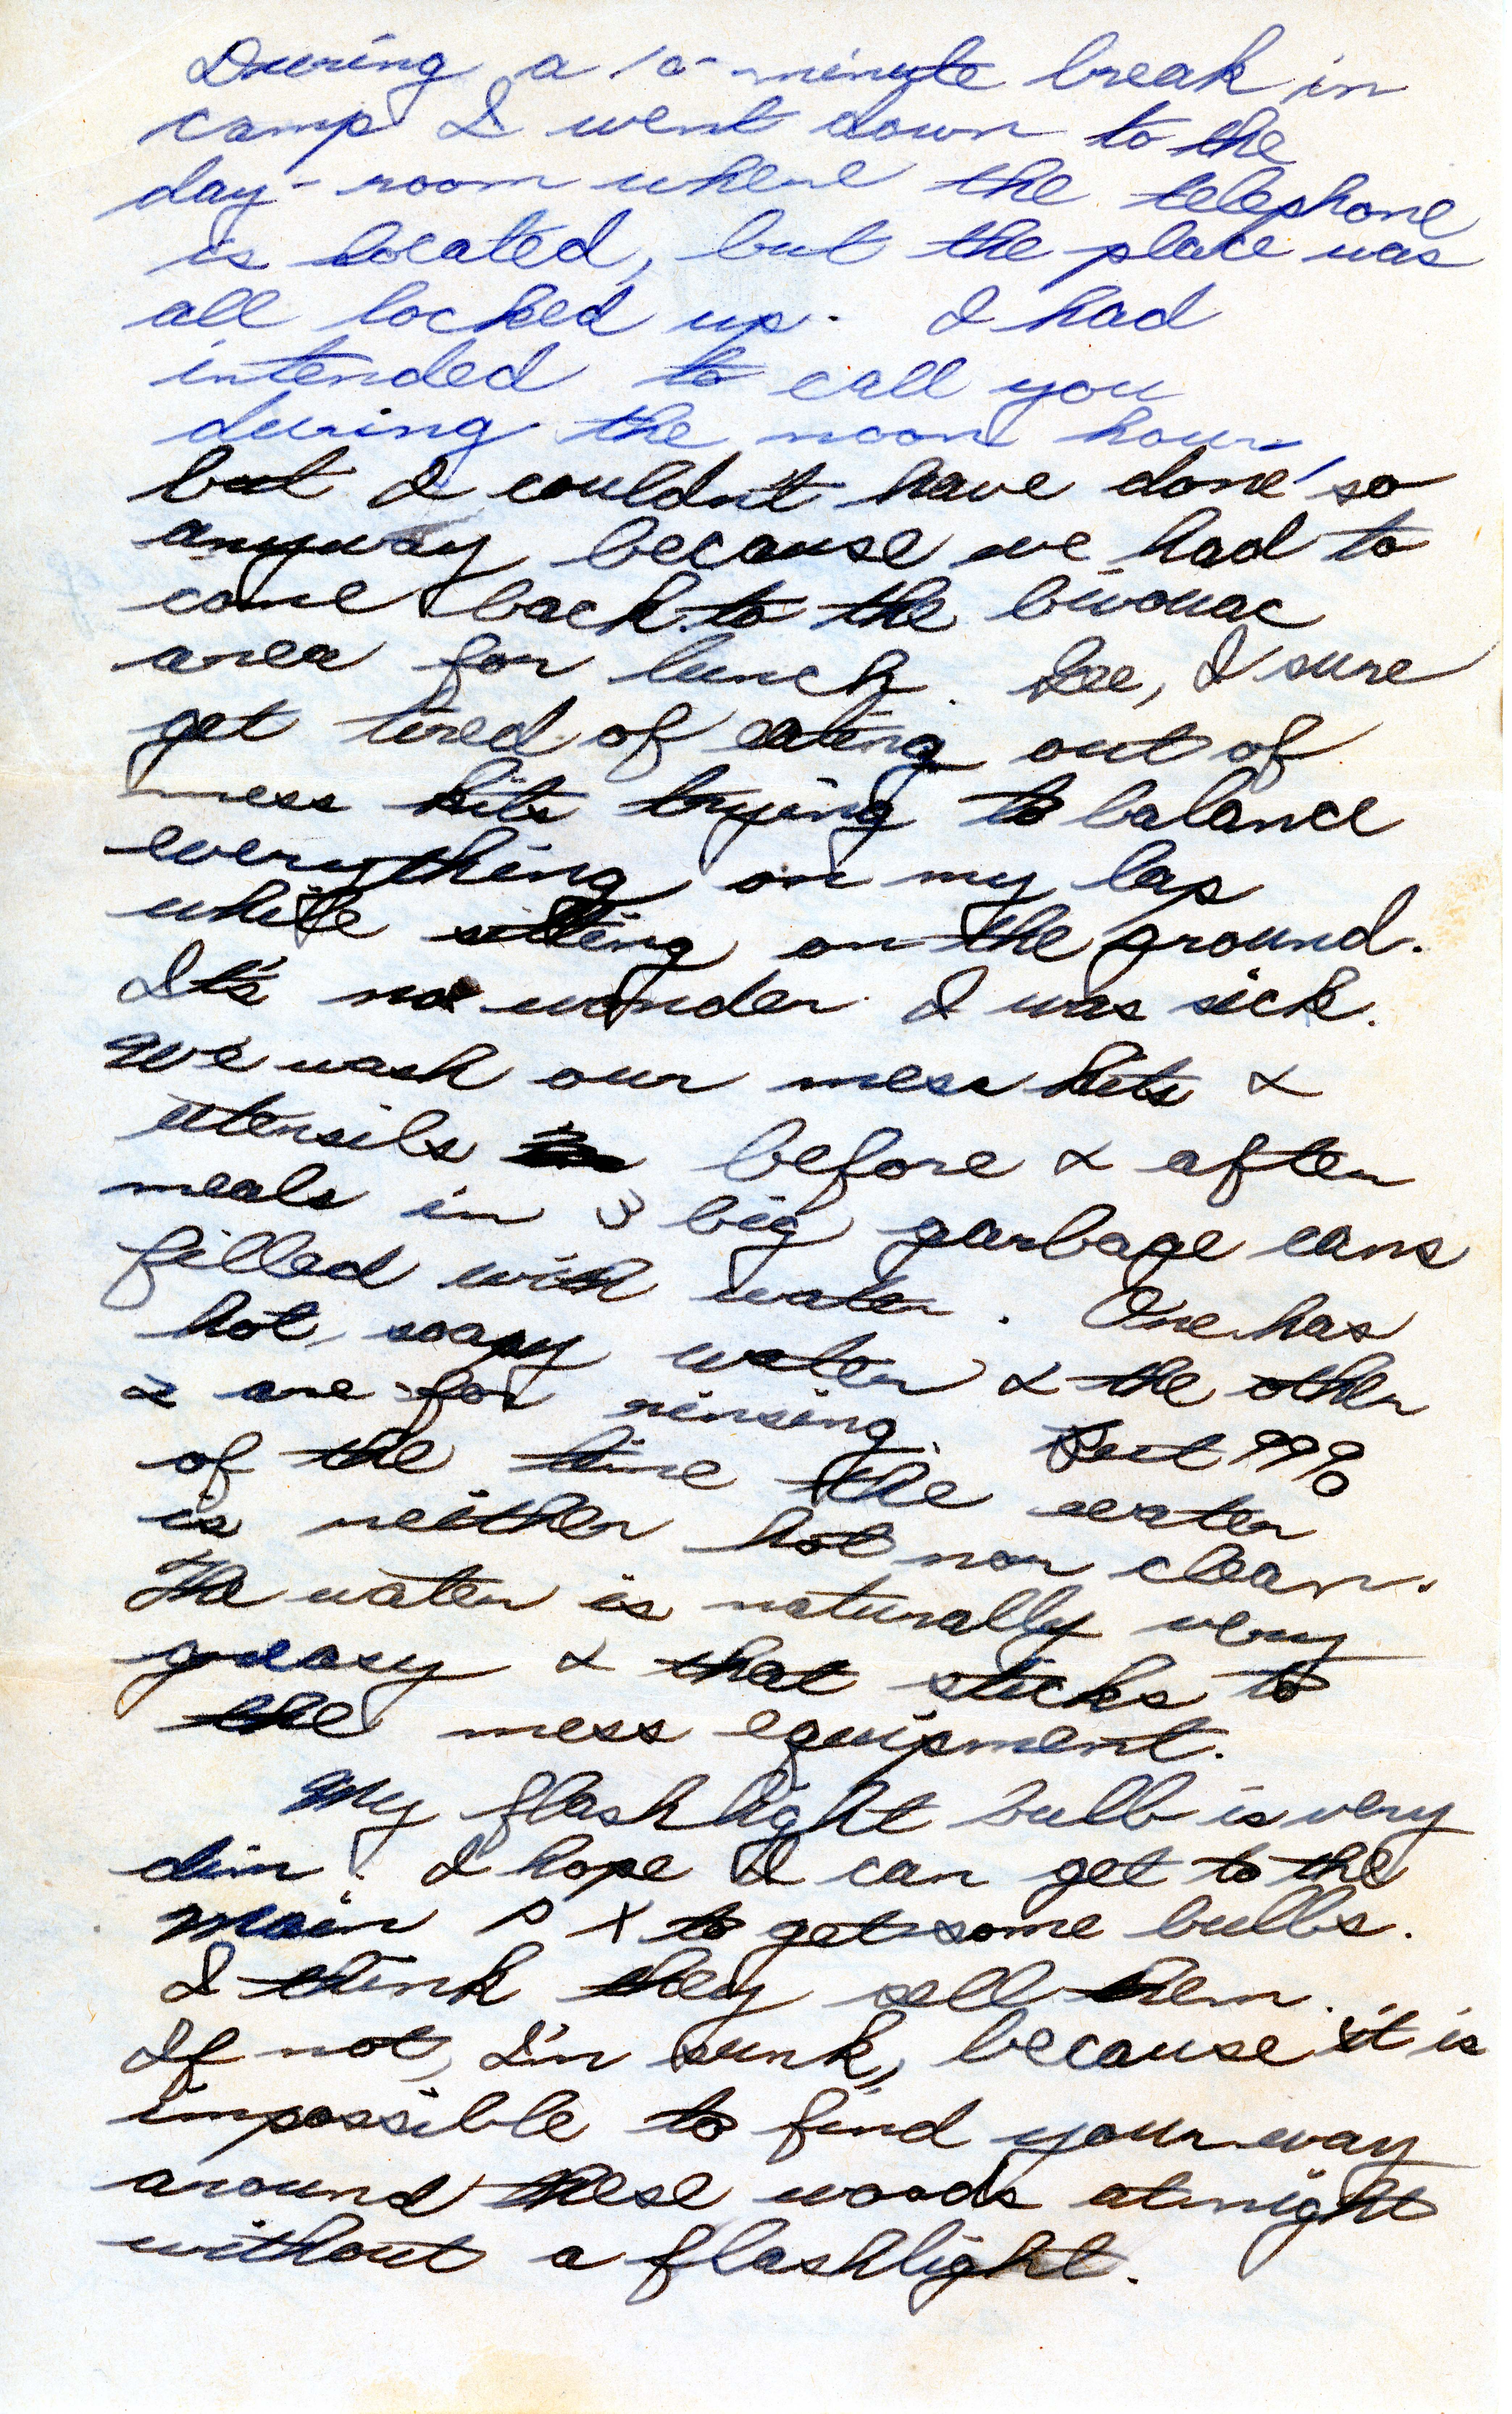 During a 10-minute break in
camp I went down to the
day-room where the telephone
is located, but the place was
all locked up. I had
intended to call you
during the noon hour,
but I couldn't have done so
anyway because we had to
come back to the bivouac
area for lunch. Gee, I sure
get tired of eating out of
mess kits trying to balance
everything on my lap
while sitting on the ground.
It's no wonder I was sick.
We wash our mess kits &
utensils before & after
meals in 3 big garbage cans
filled with water. One has
hot, soapy water & the other
2 are for rinsing. But 99%
of the time the water
is neither hot nor clean.
The water is naturally very
greasy & that sticks to
the mess equipment.
My flashlight bulb is very
dim. I hope I can get to the
main PX to get some bulbs.
I think they sell them.
If not, I'm sunk, because it is
impossible to find your way
around these woods at night
without a flashlight.